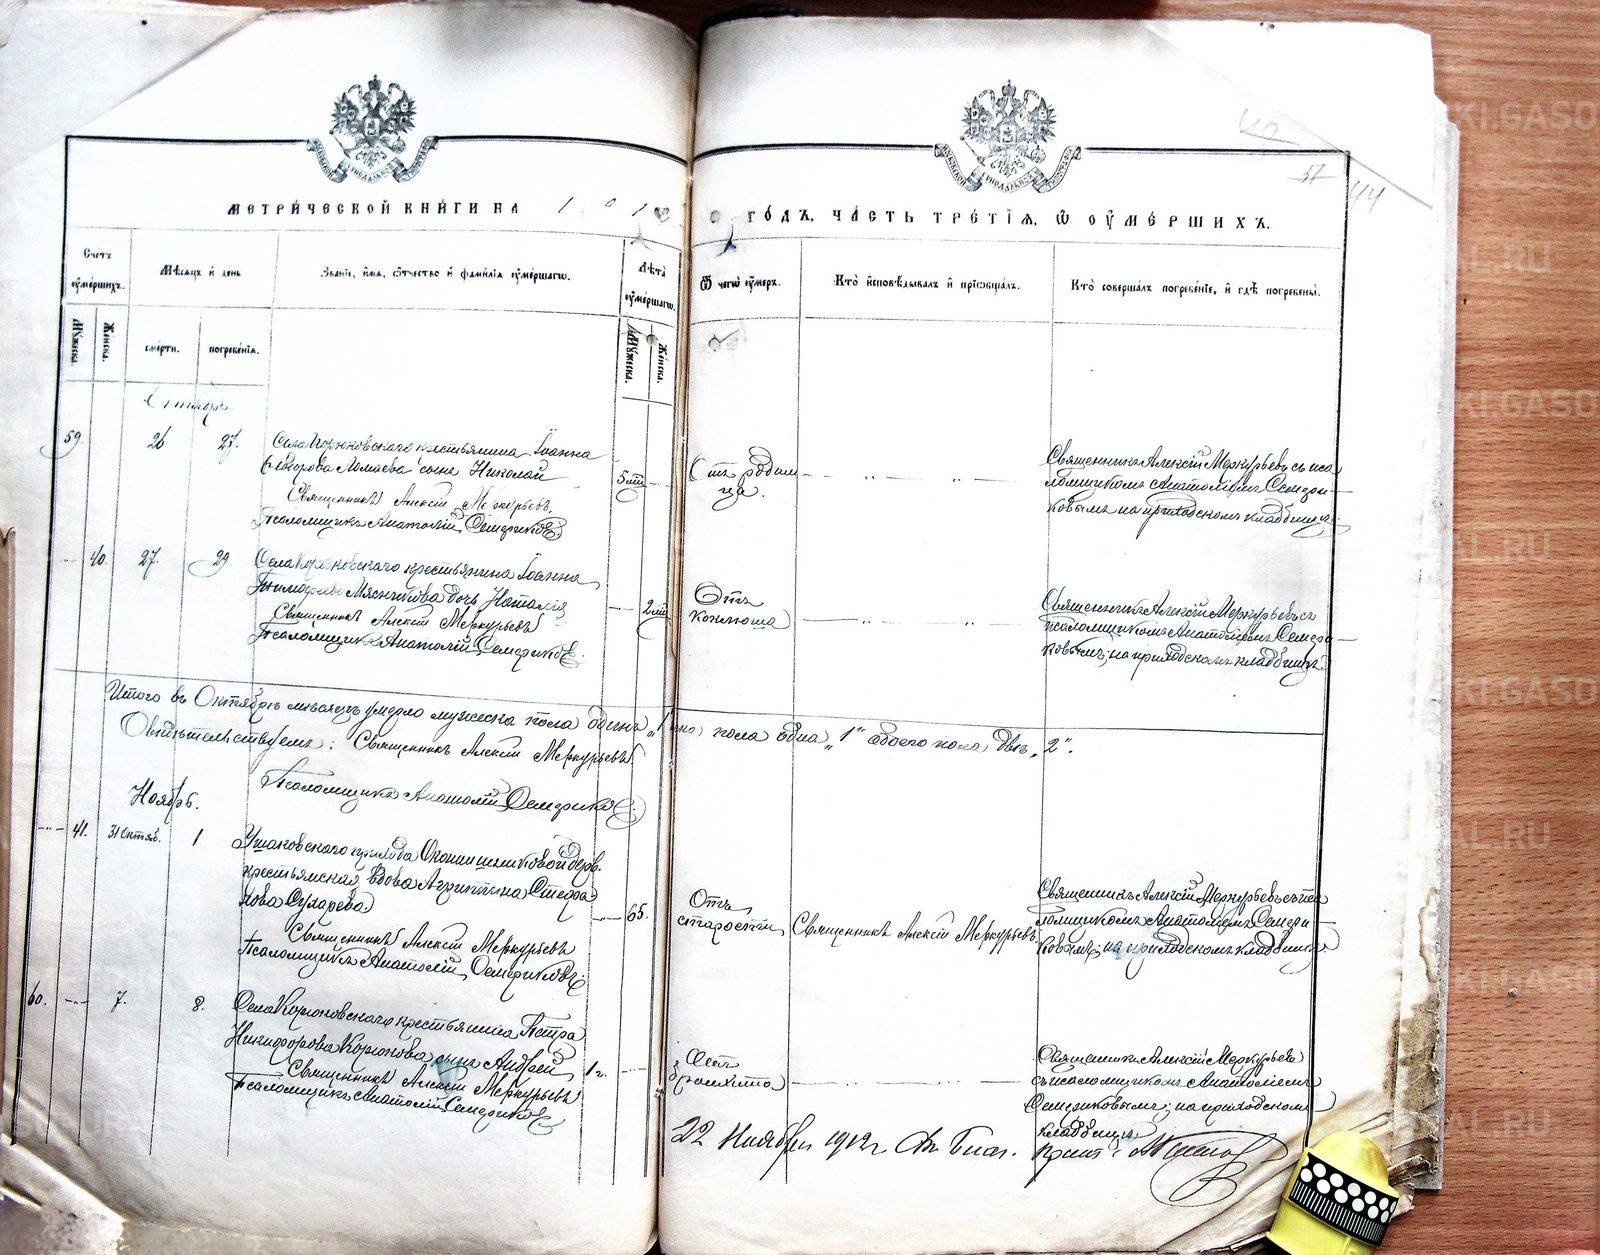 МЕТРИ́ЧЕСКОЙ КНИ́ГИ НА 1912
ГО́ДЪ, ЧА́СТЬ ТРЕ́ТІЯ, Ѡ ОУМЕ́РШИХЪ.
42
57
44
Счетъ оуме́ршихъ.
Мѣсяцъ и день
Зва́ніе, и́мя, о́тчество и фами́лія оуме́ршагѡ.
Лѣта оуме́ршагѡ.
Ѿ чегѡ оумеръ.
Кто̀ и҆сповѣ́дывалъ и҆ прїѡбща́лъ.
Кто̀ соверша́лъ погребе́ніе, и҆ гдѣ̀ погребены̀.
Мꙋжеска.
Женска.
смерти.
погребе́нія.
Мꙋжеска.
Женска.
Октябрь
59. 26 27.
Села Корюковскаго крестьянина Іоанна
Ѳедорова сынъ Николай
5 лѣт
Священникъ Алексій Меркурьевъ
Псаломщикъ Анатолій Семериковъ
Отъ родим
ца.
Священникъ Алексій Меркурьевъ съ пса
ломщикомъ Анатоліемъ Семери
ковымъ на приходскомъ кладбищѣ
40. 27. 29
Села Корюковскаго крестьянина Іоанна
Тимофеева Мясникова дочь Наталія
2 лѣт
Священникъ Алексій Меркурьевъ
Псаломщикъ Анатолій Семериковъ.
Отъ
коклюша
Священникъ Алексій Меркурьевъ съ
псаломщикомъ Анатоліемъ Семери
ковымъ; на приходскомъ кладбищѣ
Итого въ Октябрѣ мѣсяцѣ умерло мужеска пола одинъ „1 пола одна „1" обоего пола двое „2".
Свидѣтельствуемъ: Священникъ Алексій Меркурьевъ
Псаломщикъ Анатолій Семериковъ.
Ноябрь.
41. 31 Октяб. 1
Ушаковскаго прихода дерев.
крестьянская вдова Агриппина Стефа
нова Сухарева
65.
Священникъ Алексій Меркурьевъ
Псаломщикъ Анатолій Семериковъ.
Отъ
старости
Священникъ Алексій Меркурьевъ
Священникъ Алексій Меркурьевъ съ пса
ломщикомъ Анатоліемъ Семери
ковымъ; на приходскомъ кладбищѣ
60. 7. 8.
Села Корюковскаго крестьянина Петра
Никифорова Корюкова сынъ Андрей
1 г.
Священникъ Алексій Меркурьевъ
Псаломщикъ Анатолій Семериковъ
Отъ
бронхита
Священникъ Алексій Меркурьевъ
съ псаломщикомъ Анатоліемъ
Семериковымъ; на приходскомъ
кладбищѣ
22 Ноября 1912 г.
KI.GASO
AL.RU
KI.GASO
AL.RU
KI.GASO
AL.RU
KI.GASO
AL.RU